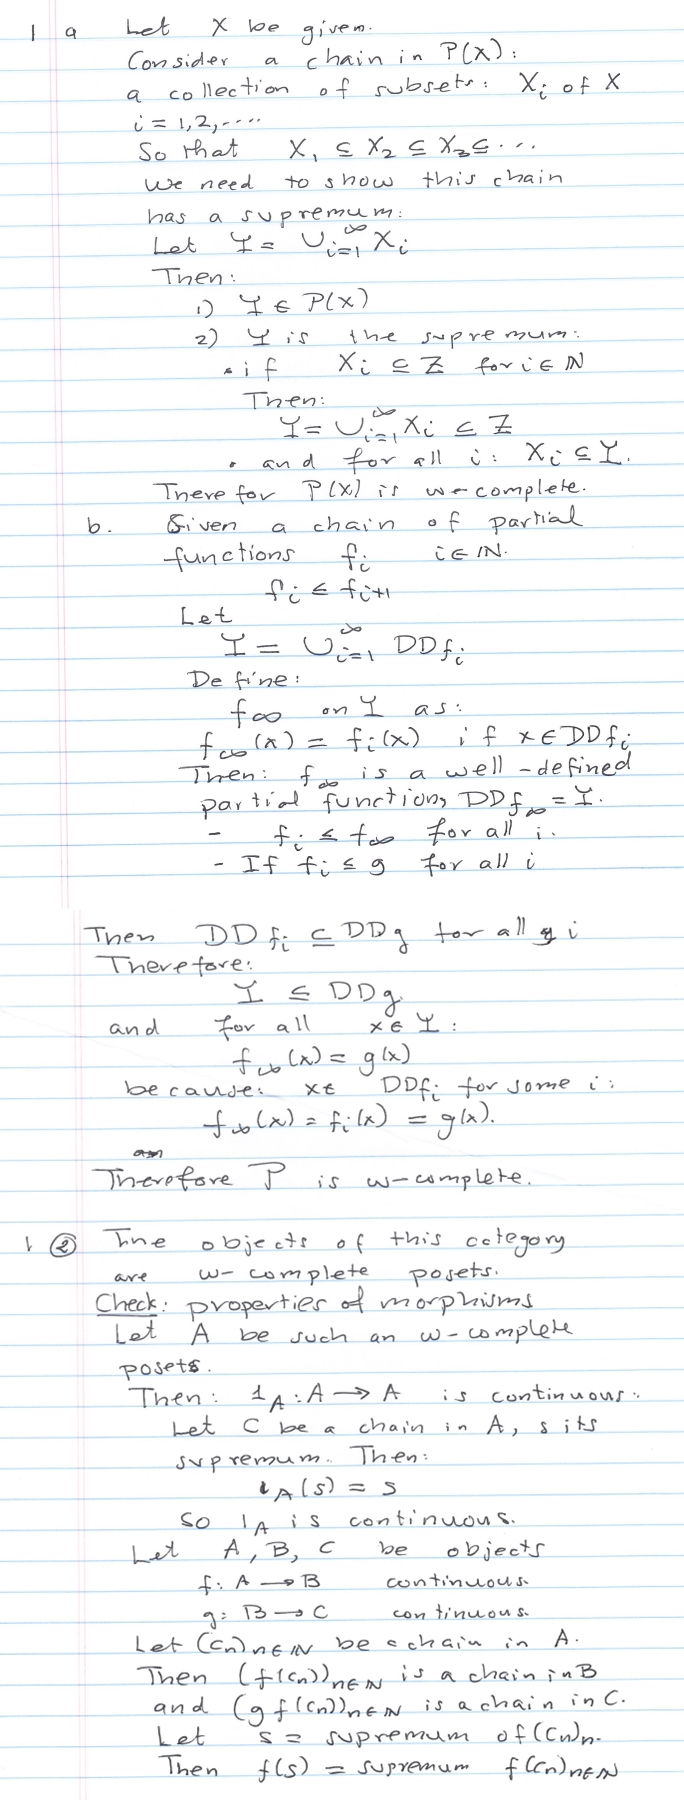 1 a Let X be given.
Consider a chain in P(X):
a collection of subsets: Xᵢ of X
i = 1,2,....
So that X₁ ⊆ X₂ ⊆ X₃ ⊆ ...
we need to show this chain
has a supremum:
Let Y = ∪ᵢ₌₁^∞ Xᵢ
Then:
1) Y ∈ P(X)
2) Y is the supremum:
• if Xᵢ ⊆ Z for i ∈ ℕ
Then:
Y = ∪ᵢ₌₁^∞ Xᵢ ⊆ Z
• and for all i: Xᵢ ⊆ Y.
There for P(X) is w-complete.
b. Given a chain of partial
functions fᵢ i ∈ ℕ.
fᵢ ≤ fᵢ₊₁
Let
Y = ∪ᵢ₌₁^∞ DDfᵢ
Define:
f∞ on Y as:
f∞(x) = fᵢ(x) if x ∈ DDfᵢ
Then: f∞ is a well-defined
partial function, DDf∞ = Y.
- fᵢ ≤ f∞ for all i.
- If fᵢ ≤ g for all i
Then DDfᵢ ⊆ DDg for all i
Therefore:
Y ≤ DDg
and for all x ∈ Y:
f∞(x) = g(x)
because: x ∈ DDfᵢ for some i:
f∞(x) = fᵢ(x) = g(x).
Therefore P is w-complete.
1 ② The objects of this category
are w-complete posets.
Check: properties of morphisms
Let A be such an w-complete
posets.
Then: 1_A : A → A is continuous:
Let C be a chain in A, s its
supremum. Then:
1_A(s) = s
So 1_A is continuous.
Let A, B, C be objects
f: A → B continuous.
g: B → C continuous.
Let (cn)n∈ℕ be a chain in A.
Then (f(cn))n∈ℕ is a chain in B
and (g f(cn))n∈ℕ is a chain in C.
Let s = supremum of (Cn)n.
Then f(s) = supremum f(cn)n∈ℕ